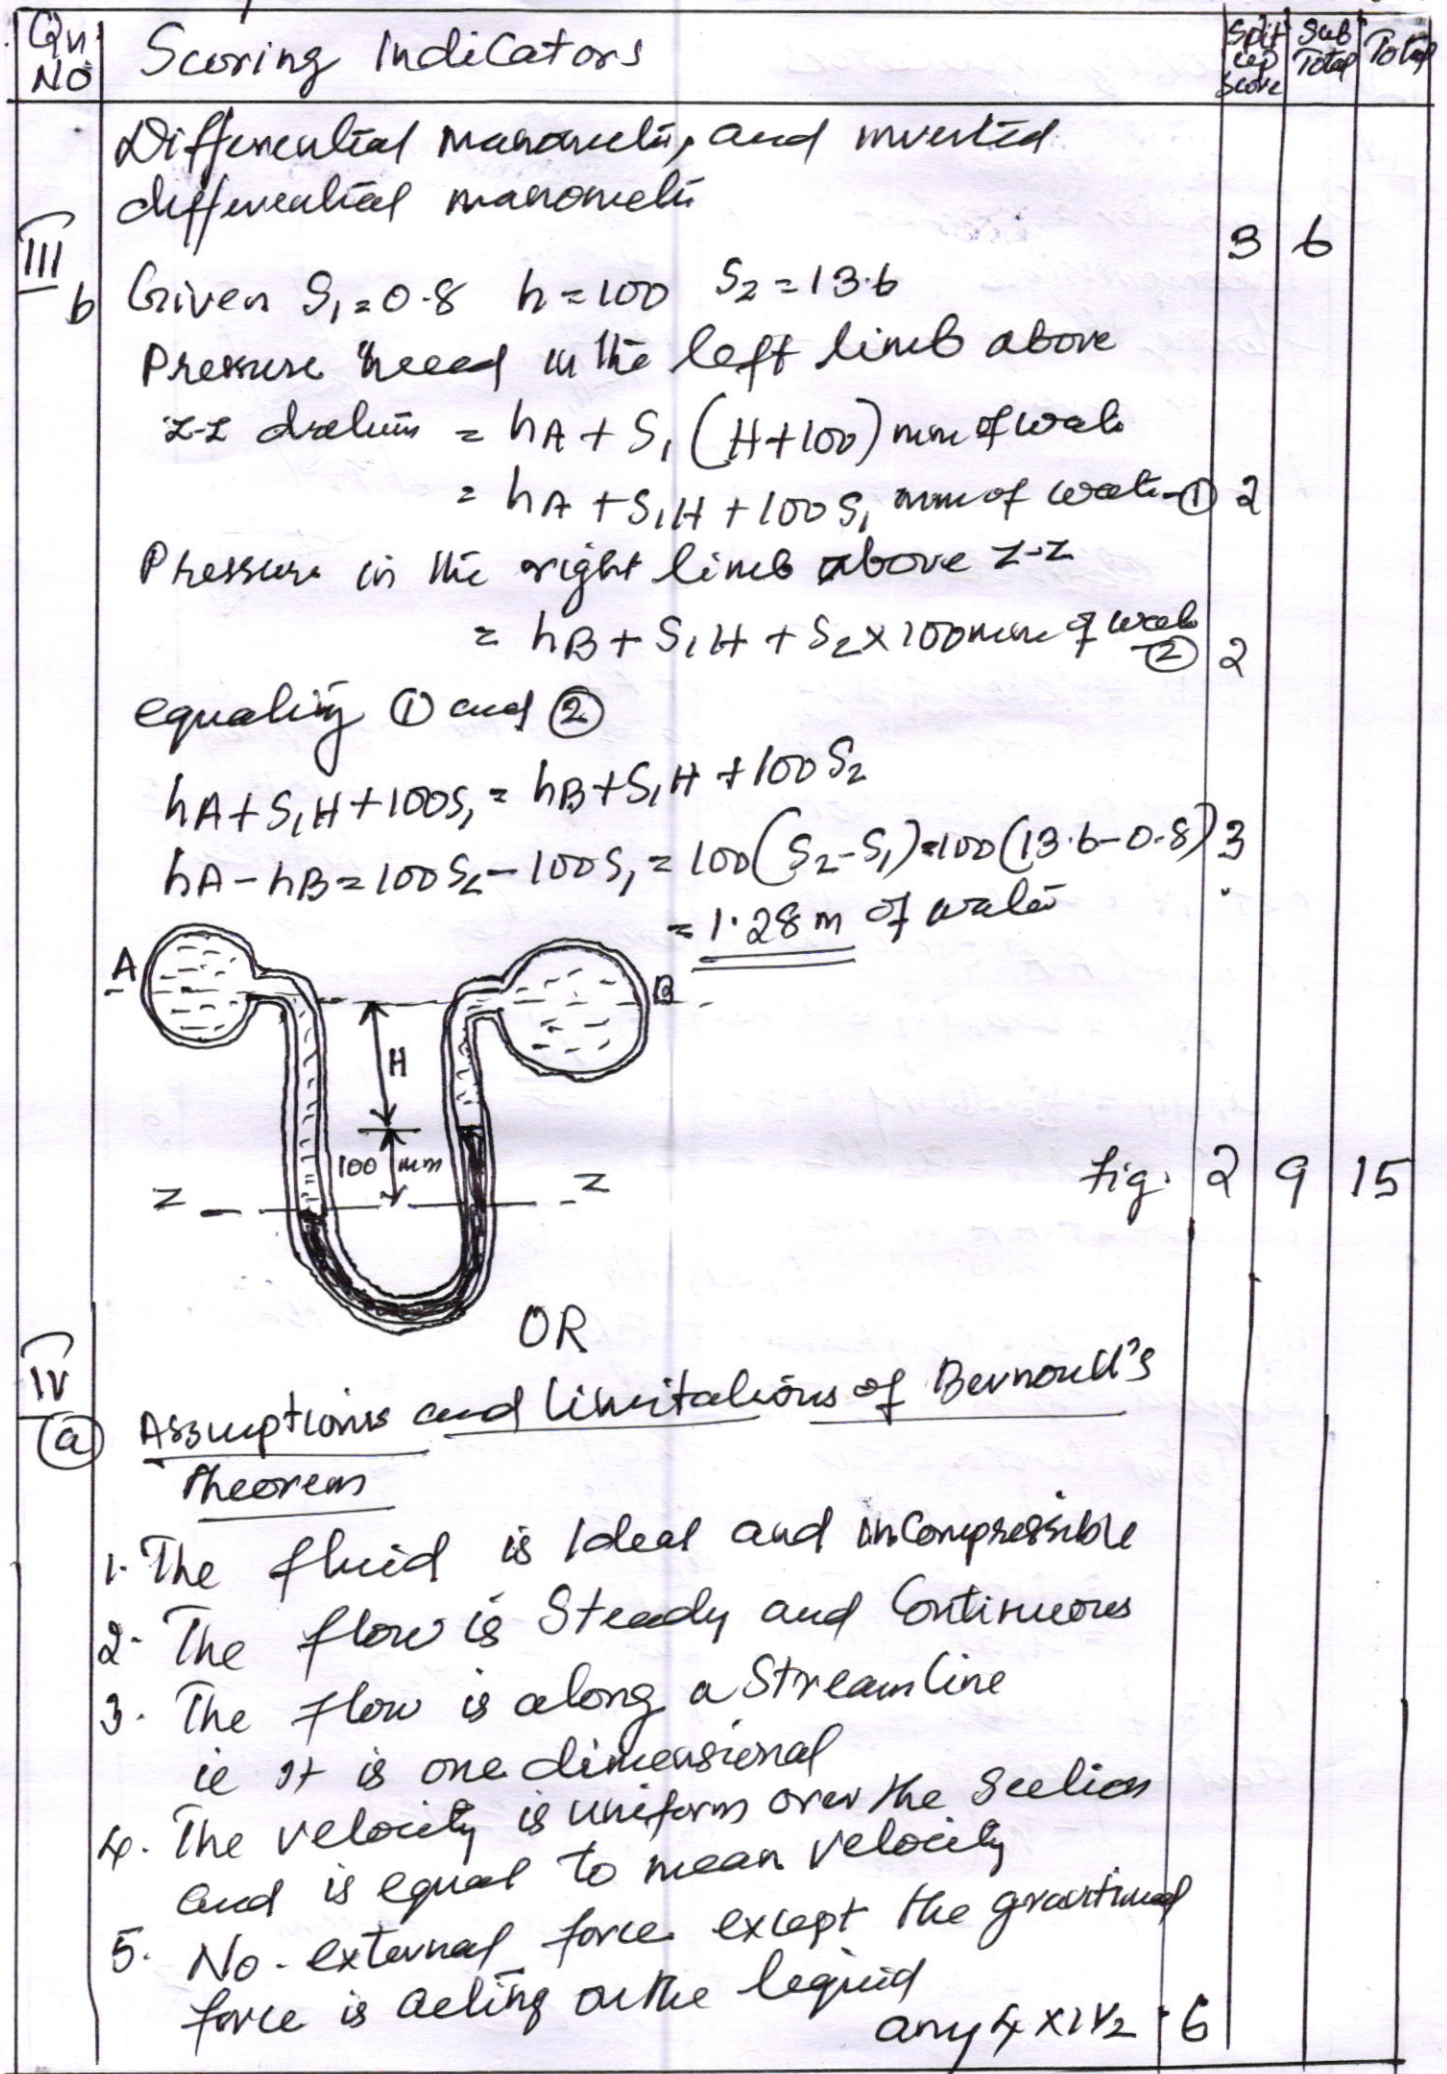 Qn NO Scoring Indicators Split up Score Sub Total Total
Differential manometer, and inverted
differential manometer
3 6
III
b Given S₁=0.8 h=100 S₂=13.6
Pressure head in the left limb above
Z-Z datum = hA + S₁(H+100) mm of water
= hA + S₁H + 100S₁ mm of water -① 2
Pressure in the right limb above Z-Z
= hB + S₁H + S₂×100mm of water
② 2
equality ① and ②
hA+S₁H+100S₁ = hB+S₁H+100S₂
hA-hB=100S₂-100S₁ = 100(S₂-S₁)=100(13.6-0.8) 3
= 1.28m of water
A B
H
100 mm
Z Z
fig. 2 9 15
OR
IV
(a) Assumptions and limitations of Bernoulli's
Theorem
1. The fluid is Ideal and incompressible
2. The flow is Steady and Continuous
3. The flow is along a Stream line
ie It is one dimensional
4. The velocity is uniform over the Section
and is equal to mean velocity
5. No. external force except the
force is acting on the liquid
any 4 x 1 1/2 6